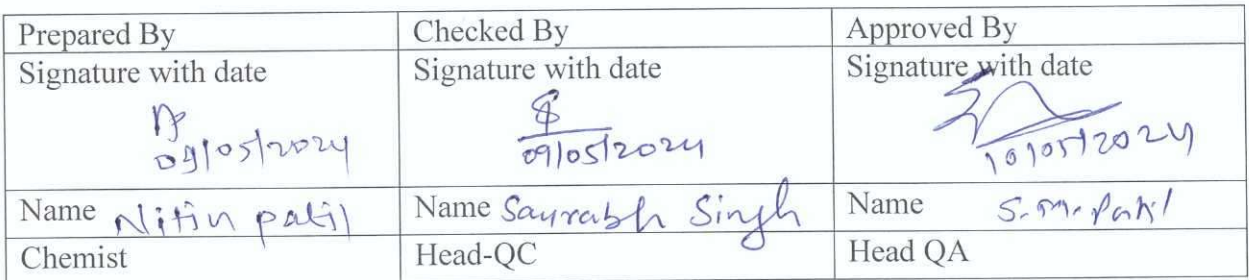 Prepared By Checked By Approved By
Signature with date Signature with date Signature with date
09/05/2024 09/05/2024 10/05/2024
Name Nitin patil Name Saurabh Singh Name S.M. Patil
Chemist Head-QC Head QA